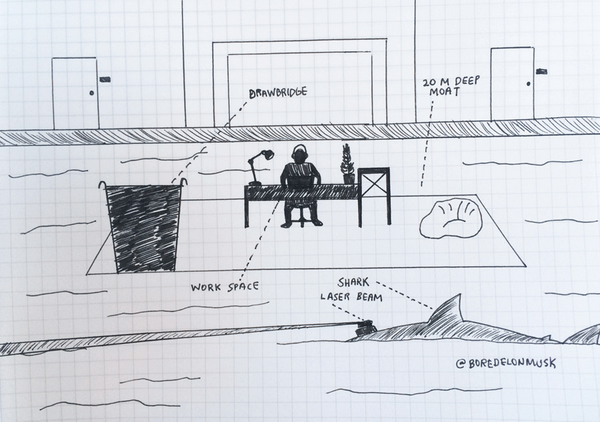 DRAWBRIDGE
20 M DEEP
MOAT
WORK SPACE
SHARK
LASER BEAM
@BOREDELONMUSK